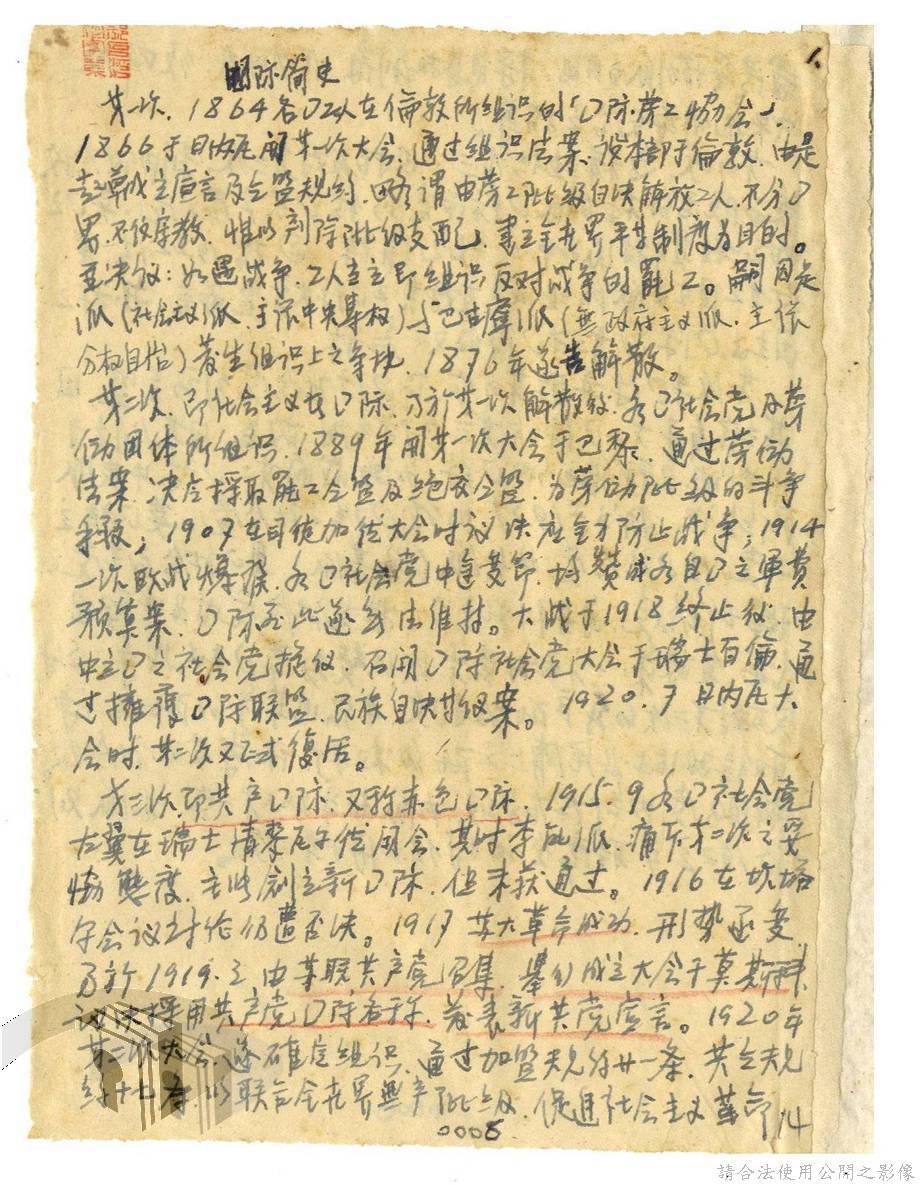 1.
国际简史
第一次. 1864各囗工人在倫敦所组识的「囗际劳工協会」.
1866于日内瓦開第一次大会. 通过组识法案. 设本部于倫敦. 由是
起草成立宣言及仝盟规约. 略谓由劳工阶级自决解放工人. 不分囗
界. 不仅宗教. 惟以剷除阶级支配. 建立全世界平等制度为目的。
並决议: 如遇战争. 工人应立即组识反对战争的罷工。嗣因是
派(社会主义派. 主张中央集权)与巴古寧派(無政府主义派. 主张
分权自治)发生组识上之争执. 1876年遂告解散。
第二次. 即社会主义女囗际. 乃于第一次解散後. 各囗社会党及劳
仂团体所组识. 1889年開第一次大会于巴黎. 通过劳仂
法案. 决定採取罷工仝盟及绝交仝盟. 为劳仂阶级的斗争
手段; 1907在司徒加德大会时议决应全力防止战争; 1914
一次欧战爆發. 各囗社会党中途变節. 均赞成各自囗之軍費
预算案. 囗际至此遂無法维持。大战于1918终止後. 由
中立囗之社会党提议. 召開囗际社会党大会于瑞士百倫. 通
过擁護囗际联盟. 民族自决等议案。1920.7日内瓦大
会时. 第二次又正式復活。
第三次. 即共产囗际. 又称赤色囗际. 1915.9各囗社会党
左翼在瑞士清黎瓦尔德開会. 其时李甯派. 痛斥第二次之妥
協態度. 主张创立新囗际. 但未获通过。1916在坎塔
尔会议讨论仍遭否决。1917苏大革命成功. 形势丕变.
乃於1919.3由苏联共产党召集. 舉行成立大会于莫斯科.
议决採用共产党囗际名称. 发表新共党宣言。1920年
第二次大会. 遂確定组识. 通过加盟规约廿一条. 其仝规
约十七条. 以联合全世界無产阶级. 促進社会主义革命
14
0008
請合法使用公開之影像